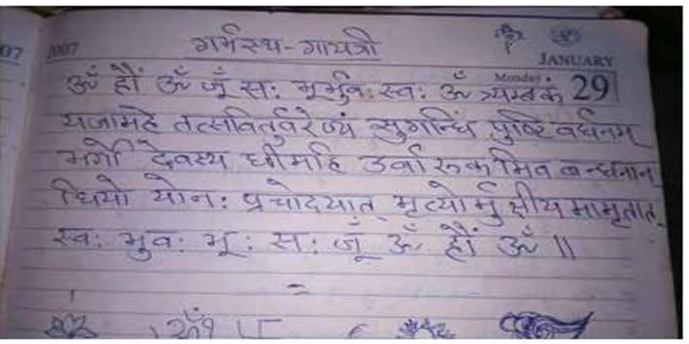 07 2007 गर्भस्थ-गायत्री
JANUARY
Monday 29
ॐ हौं ॐ जूँ सः भूर्भुवः स्वः ॐ त्र्यम्बकं
यजामहे तत्सवितुर्वरेण्यं सुगन्धिं पुष्टिवर्धनम्
भर्गो देवस्य धीमहि उर्वारुकमिव बन्धनान्
धियो योनः प्रचोदयात् मृत्योर्मुक्षीय मामृतात्
स्वः भुवः भूः सः जूँ ॐ हौं ॐ ॥